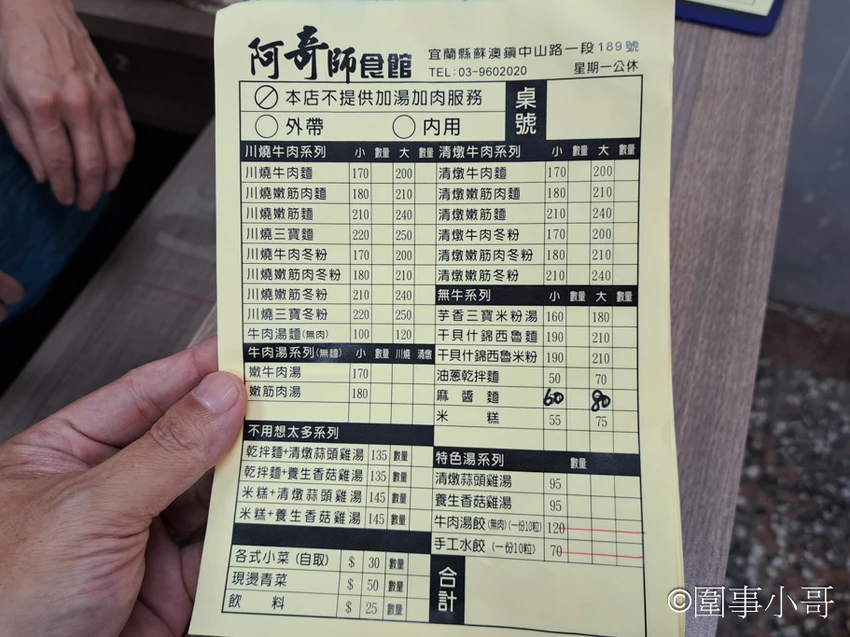 阿奇師食館
宜蘭縣蘇澳鎮中山路一段189號
TEL:03-9602020 星期一公休
本店不提供加湯加肉服務
外帶 內用
桌號
川燒牛肉系列 小 數量 大 數量
川燒牛肉麵 170 200
川燒嫩筋肉麵 180 210
川燒嫩筋麵 210 240
川燒三寶麵 220 250
川燒牛肉冬粉 170 200
川燒嫩筋肉冬粉 180 210
川燒嫩筋冬粉 210 240
川燒三寶冬粉 220 250
牛肉湯麵(無肉) 100 120
牛肉湯系列(無麵) 小 數量 川燒 清燉
嫩牛肉湯 170
嫩筋肉湯 180
不用想太多系列
乾拌麵+清燉蒜頭雞湯 135 數量
乾拌麵+養生香菇雞湯 135 數量
米糕+清燉蒜頭雞湯 145 數量
米糕+養生香菇雞湯 145 數量
各式小菜(自取) $ 30 數量
現燙青菜 $ 50 數量
飲料 $ 25 數量
清燉牛肉系列 小 數量 大 數量
清燉牛肉麵 170 200
清燉嫩筋肉麵 180 210
清燉嫩筋麵 210 240
清燉牛肉冬粉 170 200
清燉嫩筋肉冬粉 180 210
清燉嫩筋冬粉 210 240
無牛系列 小 數量 大 數量
芋香三寶米粉湯 160 180
干貝什錦西魯麵 190 210
干貝什錦西魯米粉 190 210
油蔥乾拌麵 50 70
麻醬麵 60 80
米糕 55 75
特色湯系列 數量
清燉蒜頭雞湯 95
養生香菇雞湯 95
牛肉湯餃(無肉)(一份10粒) 120
手工水餃(一份10粒) 70
合計
©圍事小哥